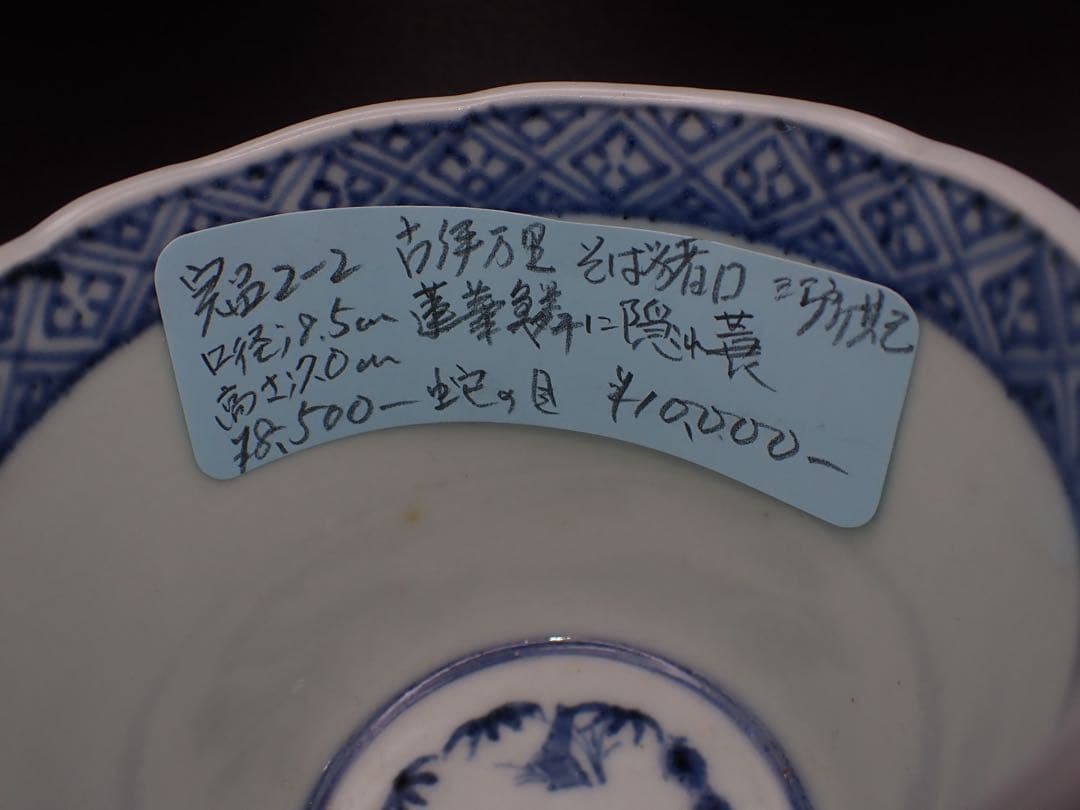 完品2-2 古伊万里 そば猪口
口径;8.5cm 蓮華 に隠れ蓑
高さ;7.0cm
¥8,500- 蛇の目 ¥10,000-